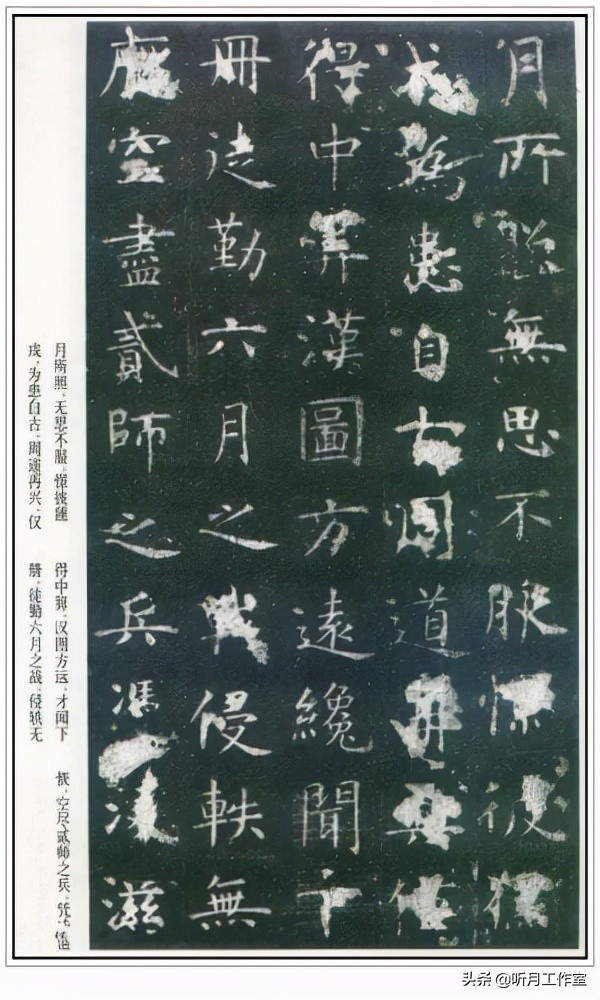 月所照無思不服憬彼獯
戎為患自古周道再興僅
得中筭漢圖方遠纔聞下
冊徒勤六月之戰侵軼無
厭空盡貳師之兵馮凌滋
月所照，无思不服，憬彼獯
戎，为患自古。周道再兴，仅
得中算，汉图方远，才闻下
册，徒勤六月之战，侵轶无
空尽贰师之兵，
头条 @听月工作室